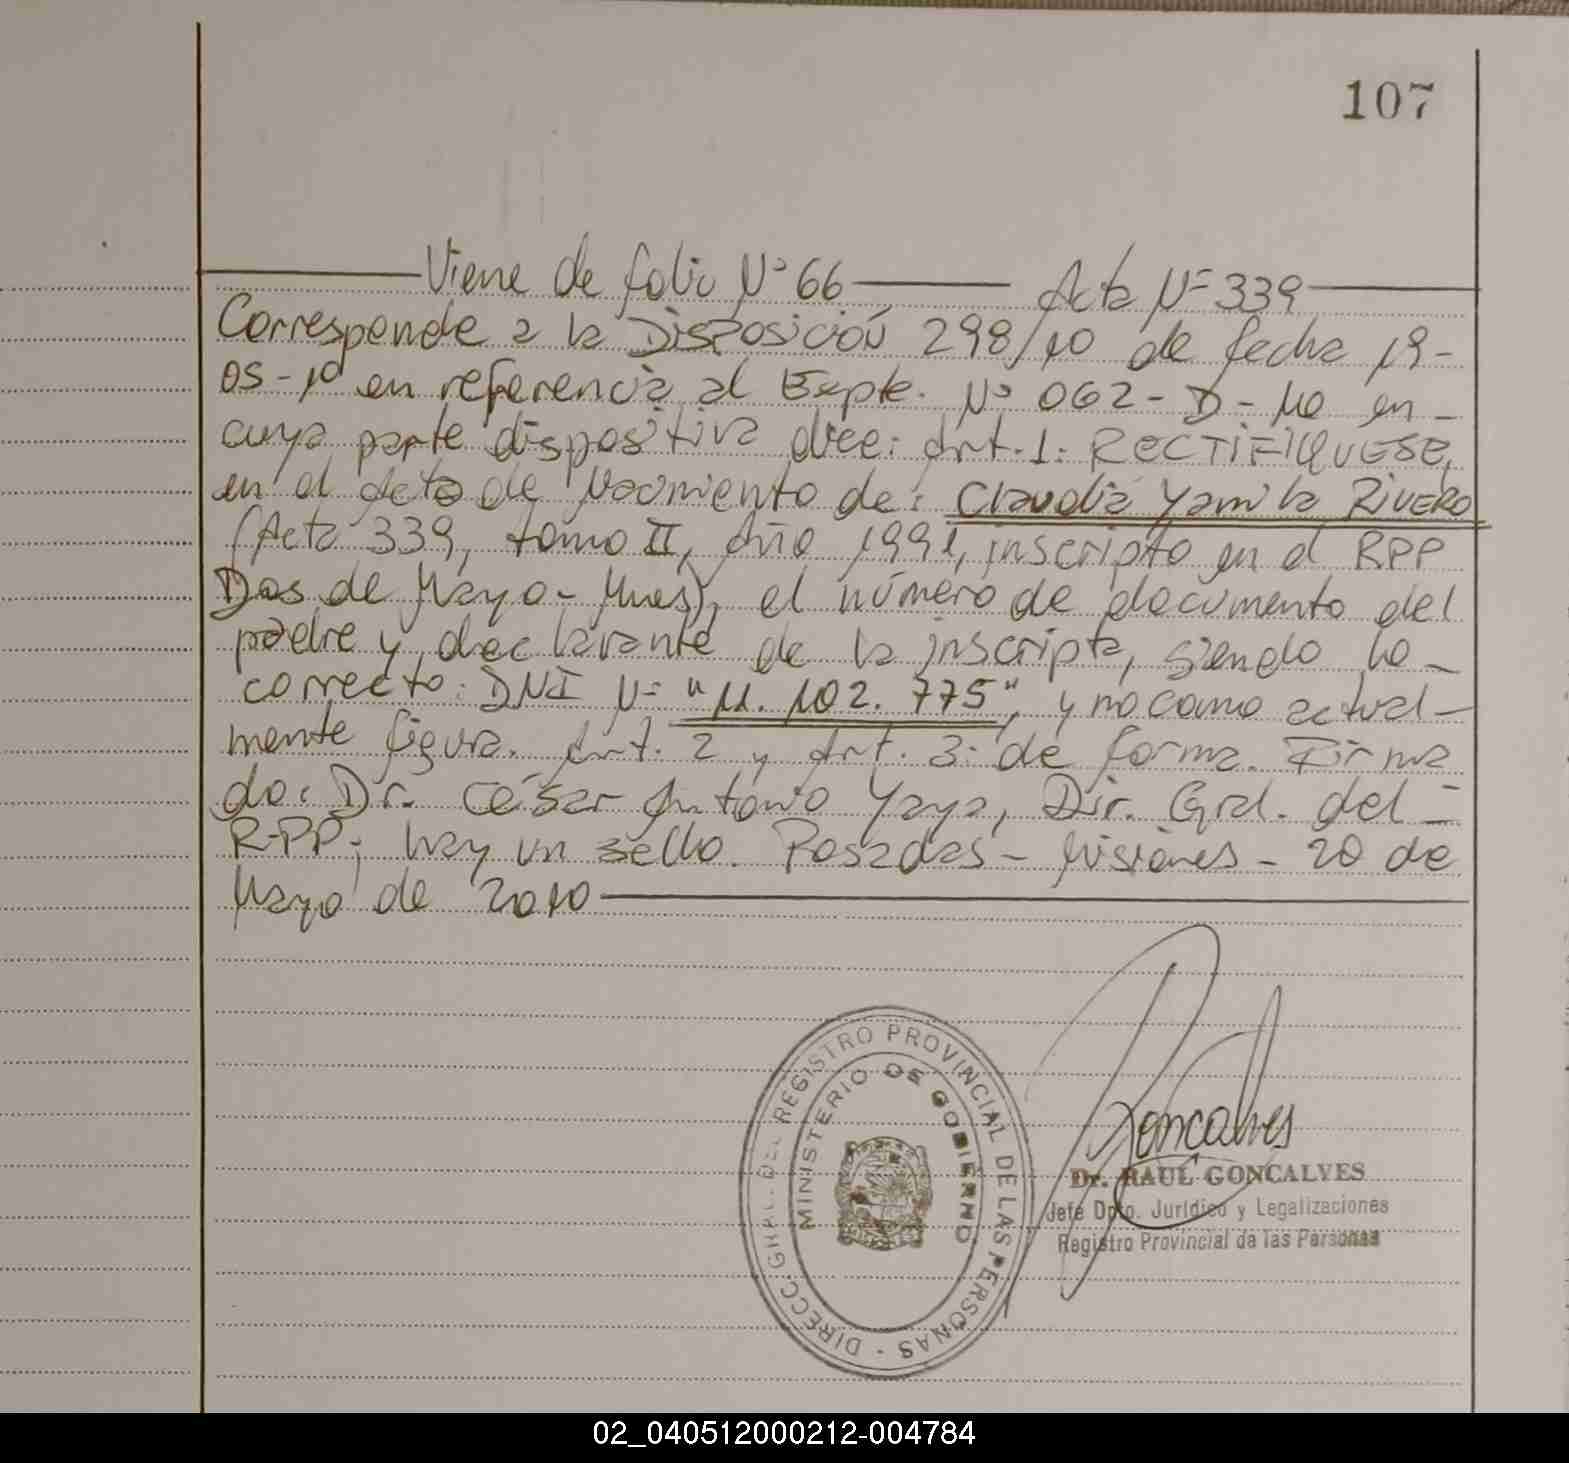 107
Viene de folio Nº 66 Acta Nº 339
Corresponde a la Disposición 298/10 de fecha 19-
05-10 en referencia al Expte. Nº 062-D-10 en-
cuya parte dispositiva dice: Art.1: RECTIFIQUESE,
en el acta de Nacimiento de: Claudia Yamila RIVERO
(Acta 339, tomo II, Año 1991, inscripto en el RPP
Dos de Mayo-Mnes), el número de documento del
padre y declarante de la inscripta, siendo lo-
correcto: DNI Nº "11.102.775", y no como actual-
mente figura. Art. 2 y Art. 3: de forma. Firma
do: Dr. César Antonio Yaya, Dir. Gral. del-
R.PP; hay un sello. Posadas-Misiones-20 de
Mayo de 2010
DIRECC. GRAL. DEL REGISTRO PROVINCIAL DE LAS PERSONAS -
MINISTERIO DE GOBIERNO
Goncalves
Dr. RAUL GONCALVES
Jefe Dpto. Jurídico y Legalizaciones
Registro Provincial de las Personas
02_040512000212-004784